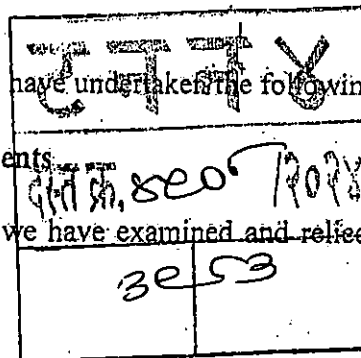 ट न न ४
have undertaken the followin
ents
दस्त क्र. ४९० /२०१४
we have examined and relied
३९ ८३